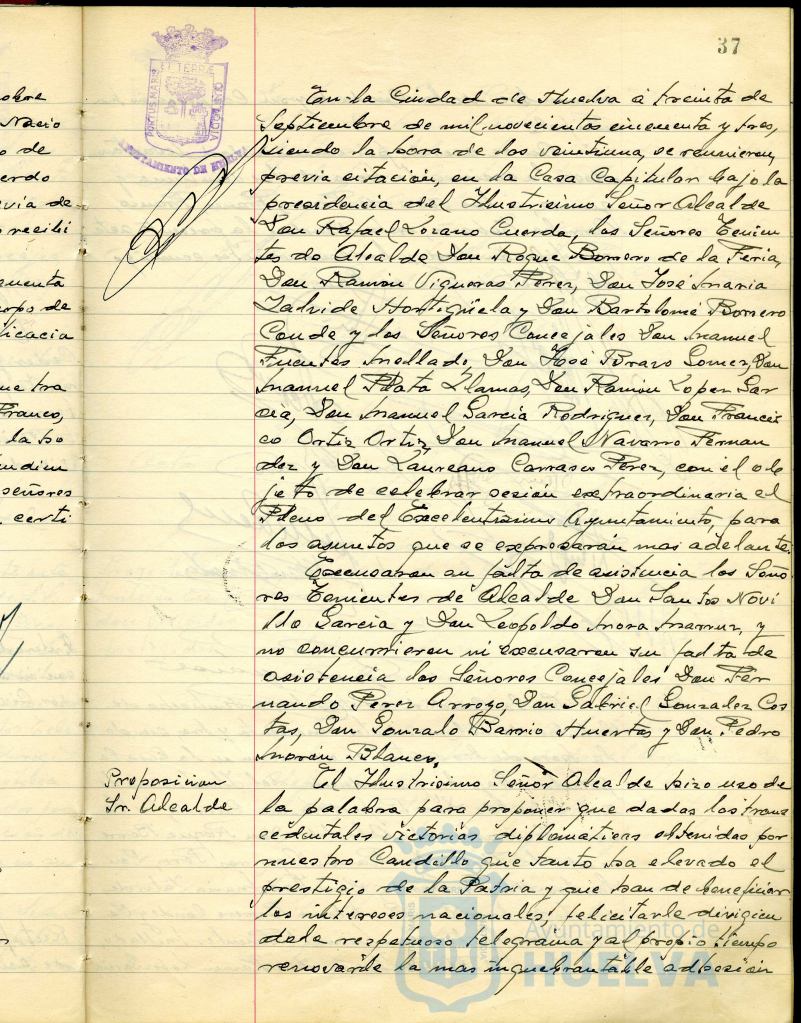 37
PORTUS MARIS
ET TERRE
CUSTODIA
AYUNTAMIENTO DE HUELVA
obre
Nacio
o de
erdo
via de
recibi
uenta
rpo de
licacia
ue tra
Franco,
la ho
ndien
señores
certi
En la Ciudad de Huelva a treinta de
Septiembre de mil novecientos cincuenta y tres,
siendo la hora de las veintiuna, se reunieron,
previa citación, en la Casa Capitular bajo la
presidencia del Ilustrisimo Señor Alcalde
Don Rafael Lozano Cuerda, los Señores Tenien
tes de Alcalde Don Roque Borrero de la Feria,
Don Ramón Vigueras Perez, Don José Maria
Zalvide Hortigüela y Don Bartolomé Borrero
Conde y los Señores Concejales Don Manuel
Fuentes Mellado, Don José Bravo Gomez, Don
Manuel Plata Llamas, Don Ramón Lopez Gar
cia, Don Manuel Garcia Rodriguez, Don Francis
co Ortiz Ortiz, Don Manuel Navarro Fernan
dez y Don Laureano Carrasco Perez, con el ob
jeto de celebrar sesión extraordinaria el
Pleno del Excelentisimo Ayuntamiento, para
los asuntos que se expresarán mas adelante.
Excusaron su falta de asistencia los Seño
res Tenientes de Alcalde Don Santos Novi
llo Garcia y Don Leopoldo Mora y
no concurrieron ni excusaron su falta de
asistencia los Señores Concejales Don Fer
nando Perez Arroyo, Don Gabriel Gonzalez Cos
tas, Don Gonzalo Barrio Huertas y Don Pedro
Morón Blanco.
Proposicion
Sr. Alcalde
El Ilustrisimo Señor Alcalde hizo uso de
la palabra para proponer que dadas las trans
cedentales victorias diplomáticas obtenidas por
nuestro Caudillo que tanto ha elevado el
prestigio de la Patria y que han de beneficiar
los intereses nacionales, felicitarle dirigien
dole respetuoso telegrama y al propio tiempo
renovarle la mas inquebrantable adhesión
Ayuntamiento de
HUELVA